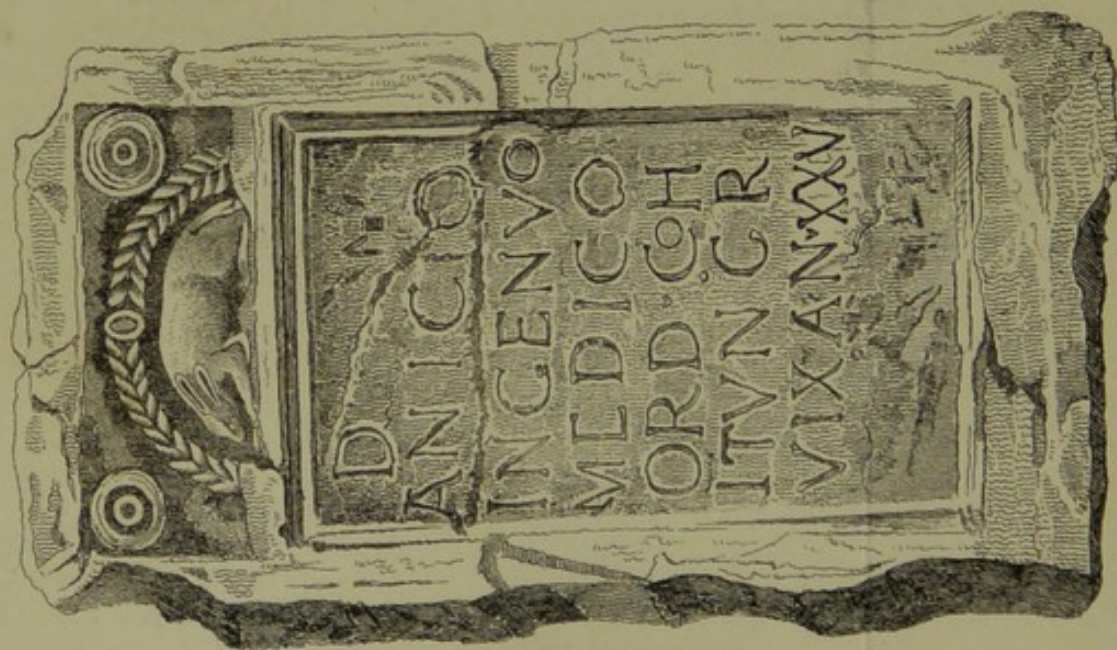 D
ANICIO
INGENVO
MEDICO
ORD COH
I TVNGR
VIX AN XXV